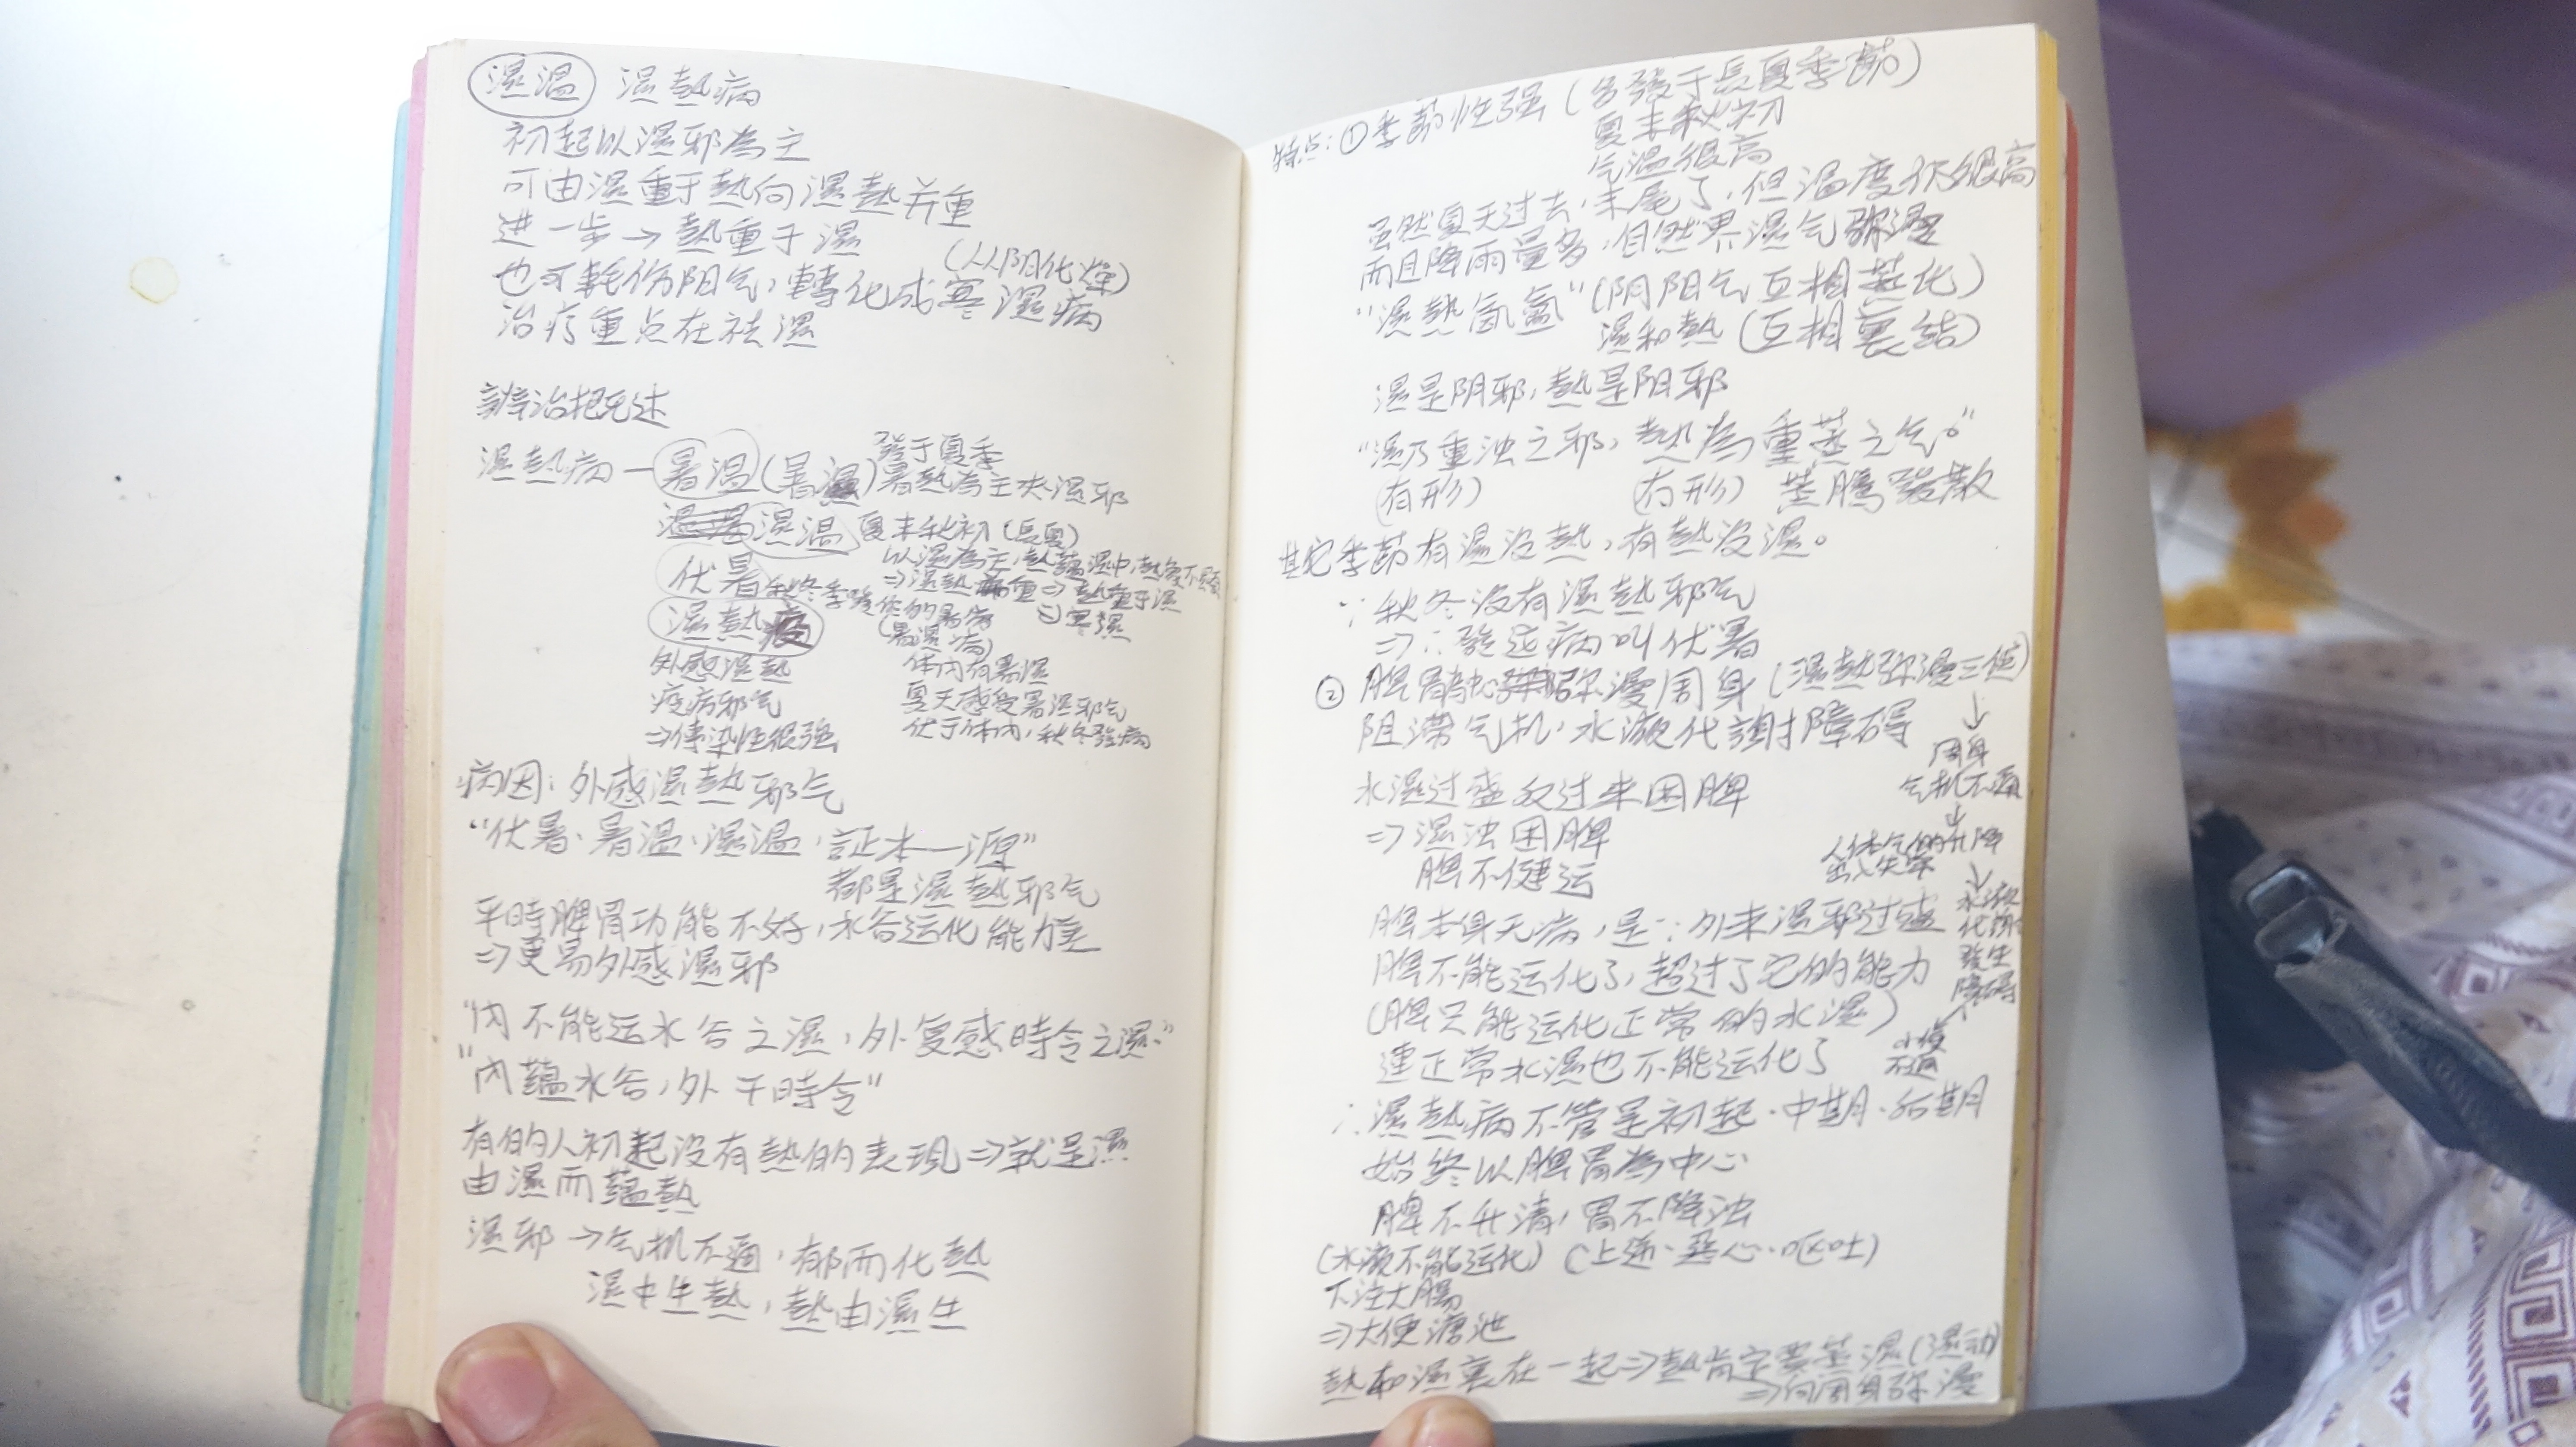 濕溫 濕熱病
初起以濕邪為主
可由濕重于熱向濕熱并重
进一步→熱重于濕
(从阳化燥)
也可耗伤阳气,轉化成寒濕病
治疗重点在祛濕
辨治概述
濕熱病—暑温(暑濕)
發于夏季
暑熱為主夹濕邪
濕温 夏末秋初(長夏)
以濕為主,熱蘊濕中,熱象不顯
⇒濕熱並重⇒熱重于濕
⇒寒濕
伏暑 秋冬季發作的暑病
(暑濕病)
体内有暑濕
夏天感受暑濕邪气
伏于体内,秋冬發病
濕熱疫
外感濕熱
疫病邪气
⇒傳染性很強
病因:外感濕熱邪气
“伏暑、暑温、濕温,証本一源”
都是濕熱邪气
平時脾胃功能不好,水谷运化能力差
⇒更易外感濕邪
“內不能运水谷之濕,外复感時令之濕”
“內蘊水谷,外干時令”
有的人初起没有熱的表現⇒就是濕
由濕而蘊熱
濕邪→气机不通,郁而化熱
濕中生熱,熱由濕生
特点:①季節性强(多發于長夏季節)
夏末秋初
气温很高
虽然夏天过去,末尾了,但温度还很高
而且降雨量多,自然界濕气弥漫
“濕熱氤氳”(阴阳气互相蒸化)
濕和熱(互相裹結)
濕是阴邪,熱是阳邪
“濕乃重浊之邪,熱為重蒸之气。”
(有形) (有形) 蒸騰發散
其它季節有濕没熱,有熱没濕。
∵秋冬没有濕熱邪气
⇒∴發这病叫伏暑
② 脾胃為中心弥漫周身(濕熱弥漫三焦)
阻滞气机,水液代謝障碍
↓
周身
气机不通
↓
人体气的升降
出入失常
↓
水液
代謝
發生
障碍
小便
不通
水濕过盛反过来困脾
⇒濕浊困脾
脾不健运
脾本身无病,是∵外来濕邪过盛
脾不能运化了,超过了它的能力
(脾只能运化正常的水濕)
連正常水濕也不能运化了
∴濕熱病不管是初起、中期、后期
始終以脾胃為中心
脾不升清,胃不降浊
(水液不能运化)(上逆、惡心、呕吐)
下注大腸
⇒大便溏泄
熱和濕裹在一起⇒熱肯定要蒸濕(濕动)
⇒向周身弥漫